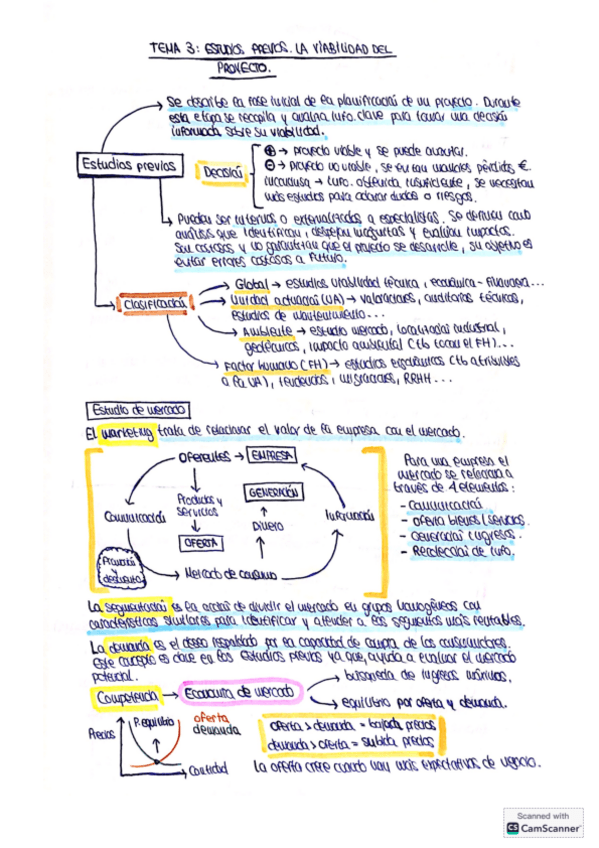 TEMA 3: ESTUDIOS PREVIOS. LA VIABILIDAD DEL
PROYECTO.
Se describe la fase inicial de la planificación de un proyecto. Durante
esta etapa se recopila y analiza info. clave para tomar una decisión
informada sobre su viabilidad.
Estudios previos
Decisión
⊕ → proyecto viable y se puede
⊖ → proyecto no viable, se evitan mayores pérdidas €.
inconclusa → info. obtenida insuficiente, se necesitan
más estudios para aclarar dudas o riesgos.
Pueden ser internos o externalizados a especialistas. Se definen como
análisis que identifican, despejan incógnitas y evalúan impactos.
Son costosos y no garantizan que el proyecto se desarrolle, su objetivo es
evitar errores costosos a futuro.
Clasificación
Global → estudios viabilidad técnica, económica-financiera...
Unidad actuación (UA) → valoraciones, auditorías técnicas,
estudios de mantenimiento...
Ambiente → estudio mercado, localización industrial,
geotécnicos, impacto ambiental (tb con el FH)...
Factor humano (FH) → estudios ergonómicos (tb atribuibles
a la UA), tendencias, migraciones, RRHH...
Estudio de mercado
El marketing trata de relacionar el valor de la empresa con el mercado.
Oferentes → EMPRESA
Productos y
servicios
OFERTA
GENERACIÓN
Dinero
Comunicación
Información
Promoción
y
descuento
Mercado de consumo
Para una empresa el
mercado se relaciona a
través de 4 elementos:
- Comunicación
- Oferta bienes/servicios.
- Generación ingresos.
- Recolección de info.
La segmentación es la acción de dividir el mercado en grupos homogéneos con
características similares para identificar y atender a los segmentos más rentables.
La demanda es el deseo respaldado por la capacidad de compra de los consumidores.
Este concepto es clave en los estudios previos ya que, ayuda a evaluar el mercado
potencial.
Competencia → Economía de mercado
búsqueda de ingresos máximos.
equilibrio por oferta y demanda.
Precios
P. equilibrio
oferta
demanda
Cantidad
oferta > demanda = bajada precios
demanda > oferta = subida precios
La oferta crece cuando hay más expectativas de negocio.
Scanned with
CS CamScanner